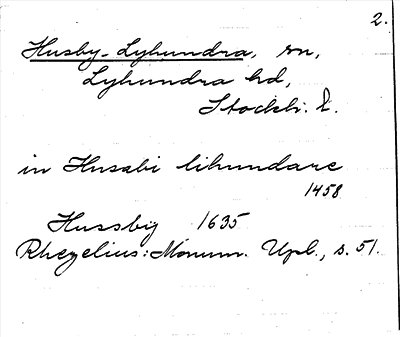 2.
Husby-Lyhundra, sn,
Lyhundra hd,
Stockh. l.
in Husabi lihundare
1458
Hussbig 1635
Rhezelius: Monum. Upl., s. 51.